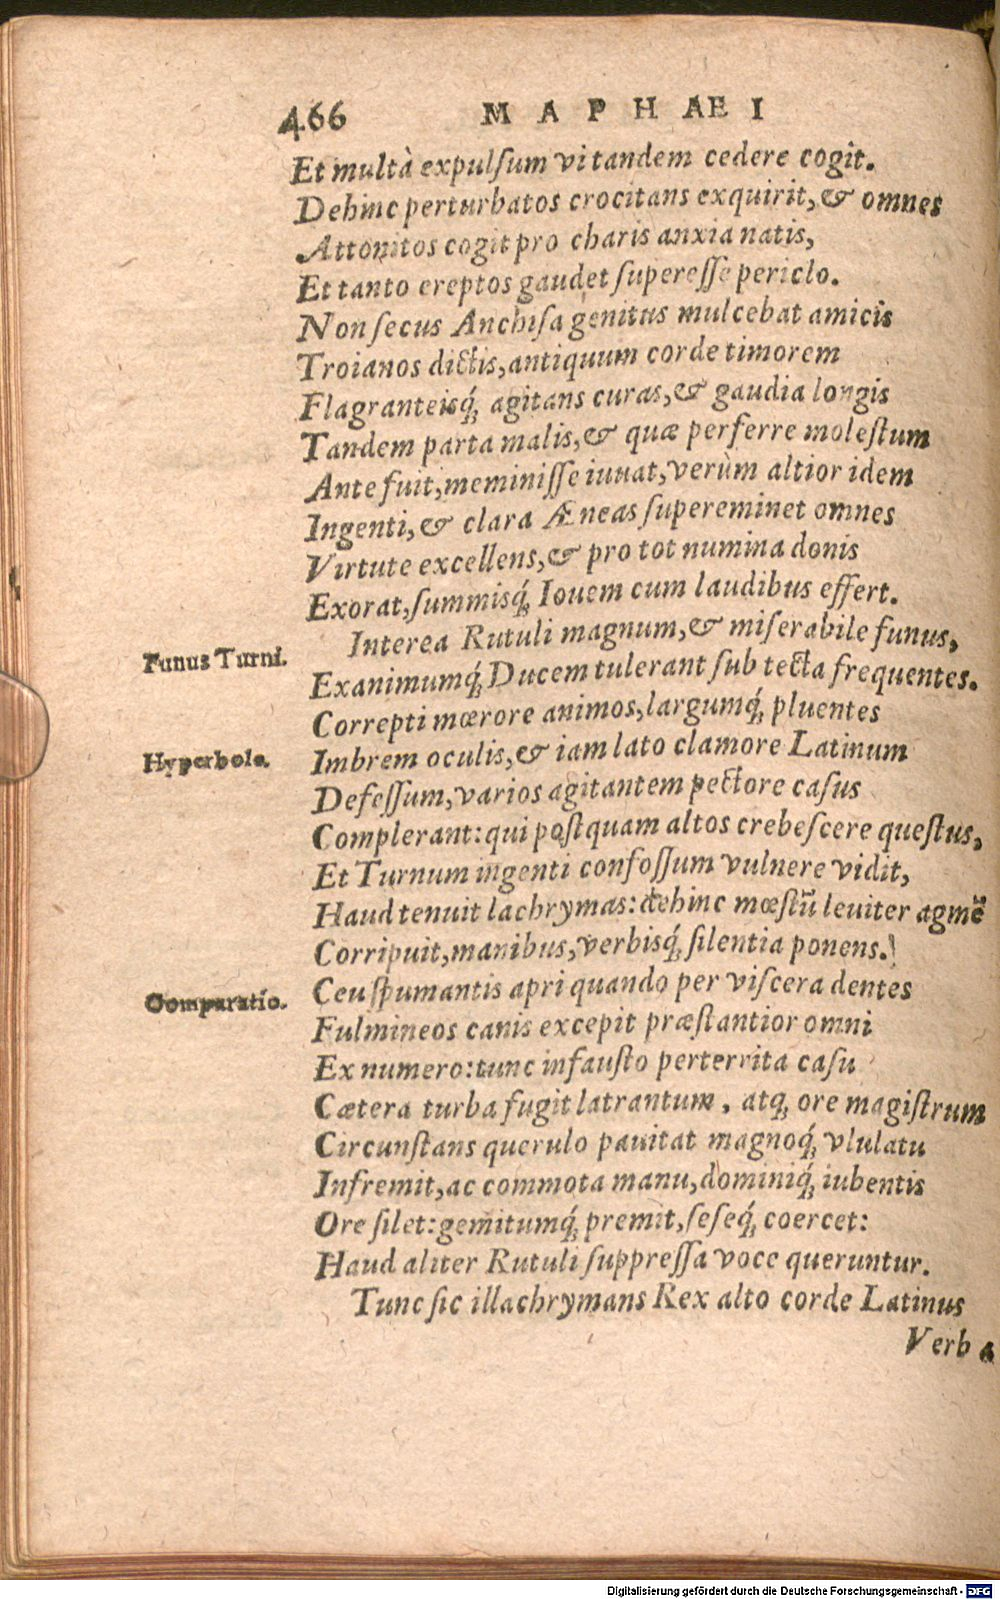 466 MAPHÆI
Et multà expulſum vi tandem cedere cogit.
Dehinc perturbatos crocitans exquirit, & omnes
Attonitos cogit pro charis anxia natis,
Et tanto ereptos gaudet ſupereſſe periclo.
Non ſecus Anchiſa genitus mulcebat amicis
Troianos dictis, antiquum corde timorem
Flagranteisq́; agitans curas, & gaudia longis
Tandem parta malis, & quæ perferre moleſtum
Ante fuit, meminiſſe iuuat, verùm altior idem
Ingenti, & clara Æneas ſupereminet omnes
Virtute excellens, & pro tot numina donis
Exorat, ſummisq́; Iouem cum laudibus effert.
Interea Rutuli magnum, & miſerabile funus,
Funus Turni.
Exanimumq́; Ducem tulerant ſub tecta frequentes.
Correpti mœrore animos, largumq́; pluentes
Hyperbole.
Imbrem oculis, & iam lato clamore Latinum
Defeſſum, varios agitantem pectore caſus
Complerant: qui poſtquam altos crebeſcere queſtus,
Et Turnum ingenti confoſſum vulnere vidit,
Haud tenuit lachrymas: dehinc mœſtũ leuiter agmẽ
Corripuit, manibus, verbisq́; ſilentia ponens.
Comparatio.
Ceu ſpumantis apri quando per viſcera dentes
Fulmineos canis excepit præſtantior omni
Ex numero: tunc infauſto perterrita caſu
Cætera turba fugit latrantum, atq; ore magiſtrum
Circunſtans querulo pauitat magnoq́; vlulatu
Infremit, ac commota manu, dominiq́; iubentis
Ore ſilet: gemitumq́; premit, ſeſeq́; coercet:
Haud aliter Rutuli ſuppreſſa voce queruntur.
Tunc ſic illachrymans Rex alto corde Latinus
Verba
Digitalisierung gefördert durch die Deutsche Forschungsgemeinschaft - DFG